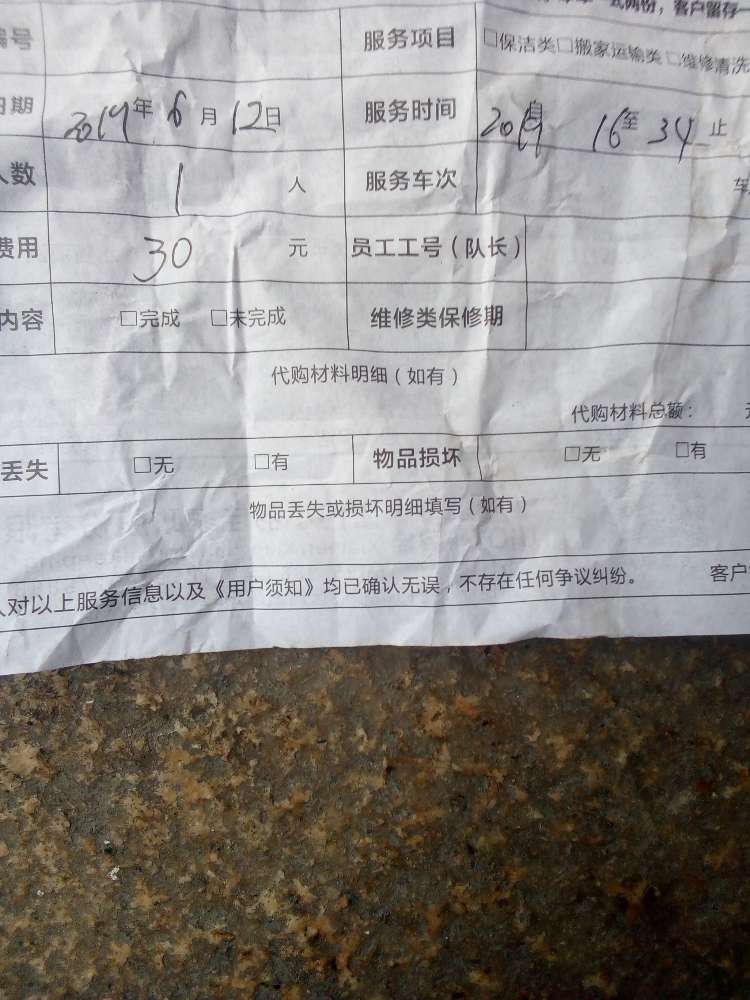 式两份，客户留存一
编号 服务项目 □保洁类□搬家运输类□维修清洗
日期 2019年6月12日 服务时间 2019自 16至34止
人数 1人 服务车次 车
费用 30 元 员工工号（队长）
内容 □完成 □未完成 维修类保修期
代购材料明细（如有）
代购材料总额：
丢失 □无 □有 物品损坏 □无 □有
物品丢失或损坏明细填写（如有）
人对以上服务信息以及《用户须知》均已确认无误，不存在任何争议纠纷。 客户